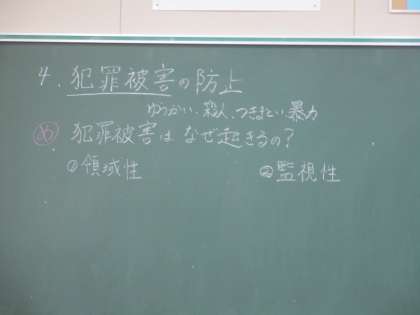 4. 犯罪被害の防止
ゆうかい、殺人、つきまとい、暴力
め 犯罪被害は なぜ起きるの?
①領域性 ②監視性